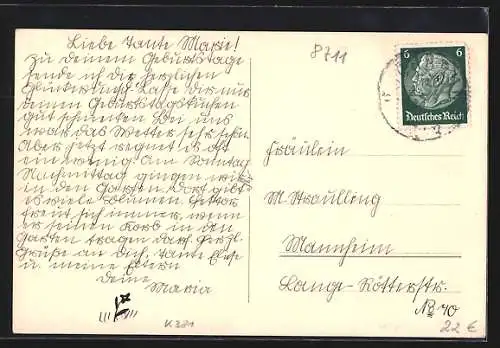 Liebe Tante Marie!
Zu deinem Geburtstage
sende ich die herzlichen
Glückwünsche. Lasse dir nur
deinen Geburtstagskuchen
gut schmecken. Bei uns
war das Wetter sehr schön.
Aber jetzt regnet es oft
ein wenig. Am Sonntag
Nachmittag gingen wir
in den Garten. Dort gibt
es viele Blumen.
freut sich immer, wenn
er seinen Korb in den
Garten tragen darf. Herzl.
Grüße an dich, Tante Else
u. meine Eltern
Deine
Maria
8711
6 6
Deutsches Reich
Fräulein
M. Straulling
Mannheim
Lange-Rötterstr.
No 40
K 381
22 €